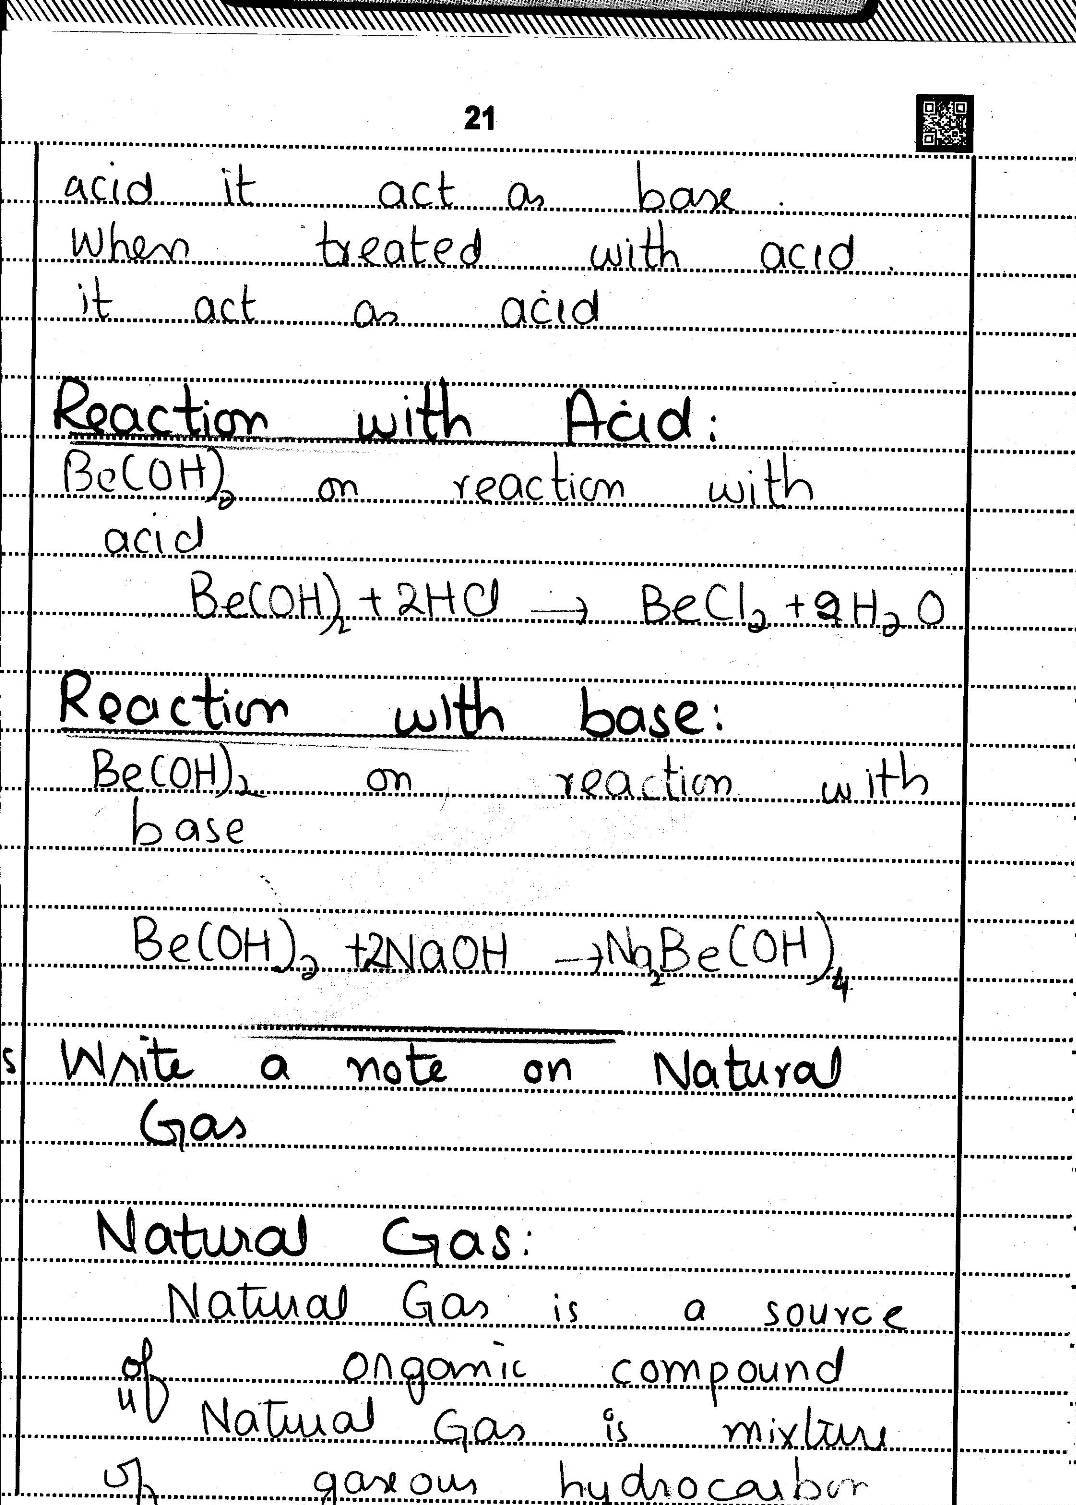 21
acid it act as base.
When treated with acid.
it act as acid
Reaction with Acid:
Be(OH)₂ on reaction with
acid
Be(OH)₂ + 2HCl → BeCl₂ + 2H₂O
Reaction with base:
Be(OH)₂ on reaction with
base
Be(OH)₂ +2NaOH → Na₂Be(OH)₄
s Write a note on Natural
Gas
Natural Gas:
Natural Gas is a source
of organic compound
Natural Gas is mixture
of gaseous hydrocarbon